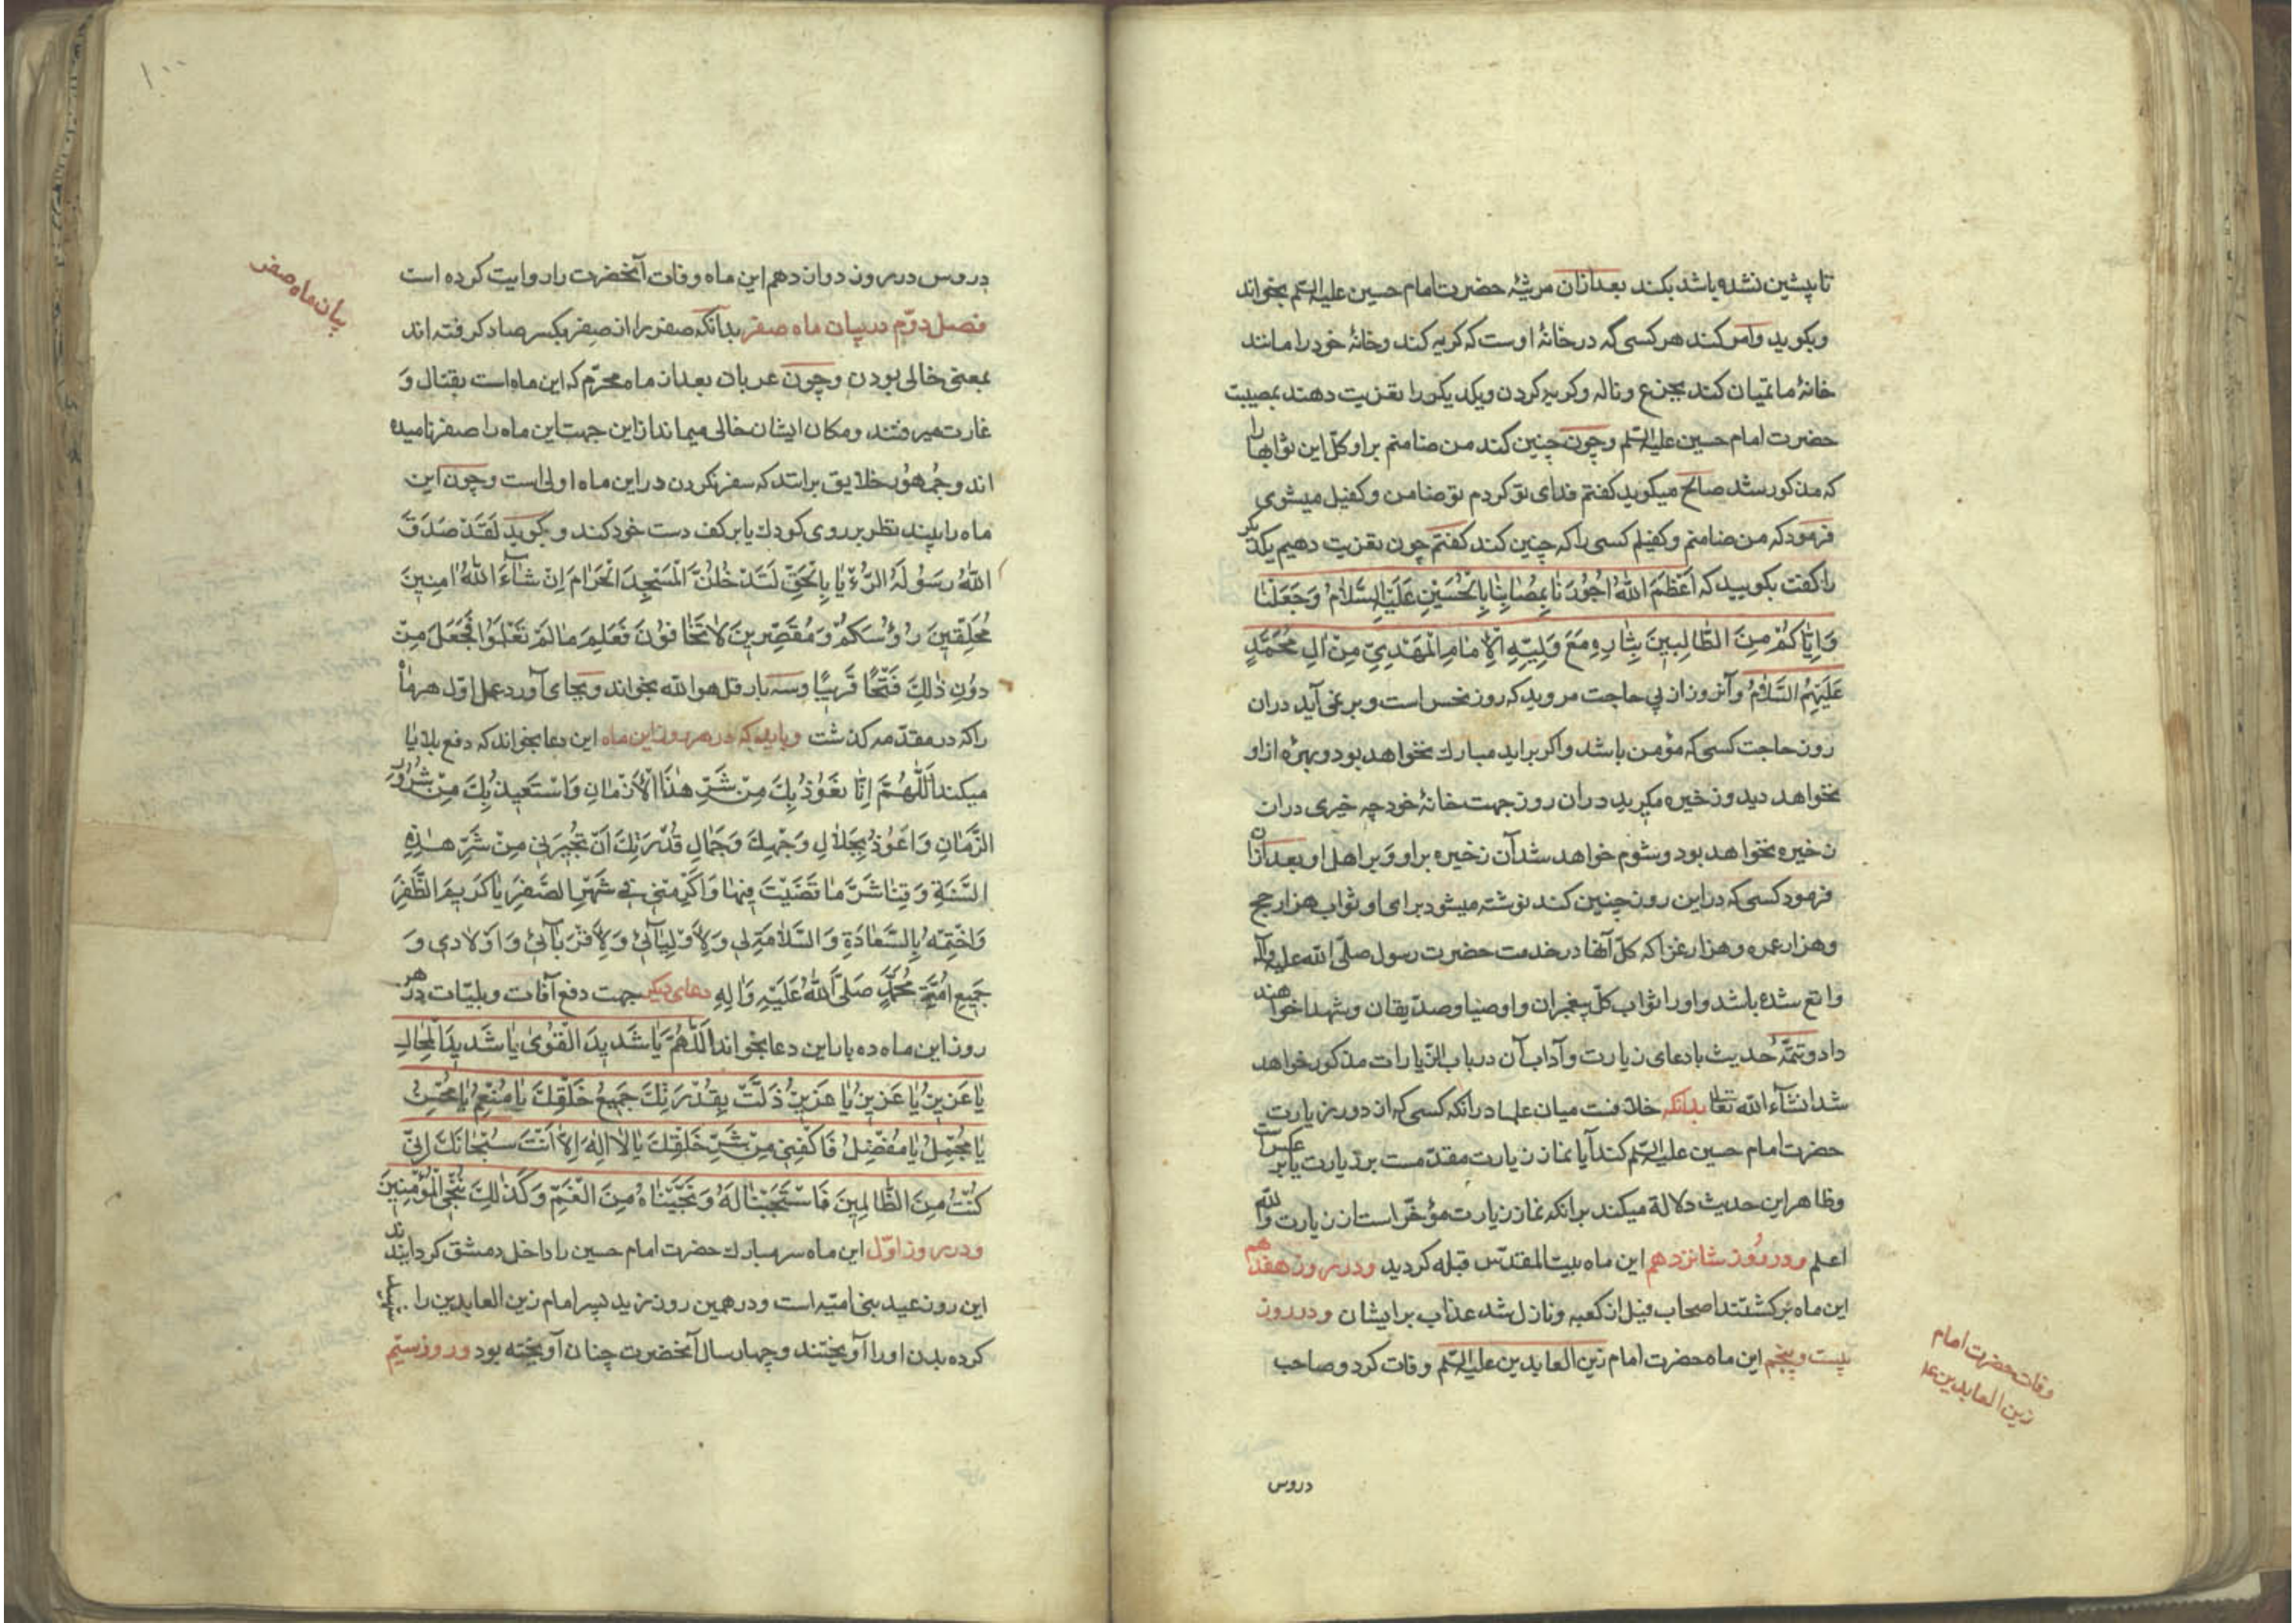 تا پیشین نشده باشد بکند بعد ازان مرثیهٔ حضرت امام حسین علیه السلم بخواند
وبکوید وامر کند هر کسی که در خانهٔ اوست که کریه کند وخانهٔ خود را مانند
خانهٔ ماتمیان کند بجزع و ناله وکریه کردن ویکدیکر را تعزیت دهند بمصیبت
حضرت امام حسین علیه السلم وچون چنین کند من ضامنم براو کل این ثوابها را
که مذکور شد صالح میکوید کفتم فدای تو کردم تو ضامن وکفیل میشوی
فرمود که من ضامنم وکفیلم کسی را که چنین کند کفتم چون تعزیت دهیم یکدیکر
را کفت بکویید که اَعْظَمَ اللّٰهُ اُجُورَنَا بِمُصَابِنَا بِالْحُسَیْنِ عَلَیْهِ السَّلَامُ وَجَعَلَنَا
وَاِیَّاکُمْ مِنَ الطَّالِبِینَ بِثَارِهِ مَعَ وَلِیِّهِ الْاِمَامِ الْمَهْدِیِّ مِنْ اٰلِ مُحَمَّدٍ
عَلَیْهِمُ السَّلَامُ وآنروز از پی حاجت مروید که روز نحس است وبر نمی آید دران
روز حاجت کسی که مؤمن باشد واکر براید مبارك نخواهد بود وبهرهٔ ازاو
نخواهد دید وذخیره مکیرید دران روز جهت خانهٔ خود چه خیری دران
ذخیره نخواهد بود وشوم خواهد شد آن ذخیره براو وبر اهل او بعد ازان
فرمود کسی که دراین روز چنین کند نوشته میشود برای او ثواب هزار حج
وهزار عمره وهزار غزا که کل آنها در خدمت حضرت رسول صلّی اللّه علیه وآله
واقع شده باشد واورا ثواب کل پیغمبران واوصیا وصدّیقان وشهدا خواهند
داد وتتمّهٔ حدیث با دعای زیارت وآداب آن در باب الزیارات مذکور خواهد
شد انشآء اللّه تعالی بدانکه خلافست میان علما درانکه کسی که از دور زیارت
حضرت امام حسین علیه السلم کند آیا نماز زیارت مقدّمست بر زیارت یا بر عکس است
وظاهر این حدیث دلالة میکند برانکه نماز زیارت مؤخّر است از زیارت واللّه
اعلم ودر روز شانزدهم این ماه بیت المقدّس قبله کردید ودر روز هفدهم
این ماه برکشتند اصحاب فیل از کعبه ونازل شد عذاب برایشان ودر روز
بیست وپنجم این ماه حضرت امام زین العابدین علیه السلم وفات کرد وصاحب
وفات حضرت امام
زین العابدین ع
دروس
۱۰۰
بیان ماه صفر
دروس در روز دوازدهم این ماه وفات آنحضرت را روایت کرده است
فصل دوّم در بیان ماه صفر بدانکه صفر را از صِفر بکسر صاد کرفته اند
بمعنی خالی بودن وچون عربان بعد از ماه محرّم که این ماه است بقتال و
غارت میرفتند ومکان ایشان خالی میماند ازاین جهت این ماه را صفر نامیده
اند وجمهور خلایق برانند که سفر نکردن در این ماه اولی است وچون این
ماه را بیند نظر بر روی کودك یا بر کف دست خود کند وبکوید لَقَدْ صَدَقَ
اللّٰهُ رَسُولَهُ الرُّءْیَا بِالْحَقِّ لَتَدْخُلُنَّ الْمَسْجِدَ الْحَرَامَ اِنْ شَآءَ اللّٰهُ اٰمِنِینَ
مُحَلِّقِینَ رُؤُسَکُمْ وَمُقَصِّرِینَ لَا تَخَافُونَ فَعَلِمَ مَا لَمْ تَعْلَمُوا فَجَعَلَ مِنْ
دُونِ ذٰلِكَ فَتْحًا قَرِیبًا وسه بار قل هو اللّه بخواند وبجای آورد عمل اوّل هر ماه
را که در مقدّمه کذشت وباید که در هر روز این ماه این دعا بخواند که دفع بلایا
میکند اَللّٰهُمَّ اِنَّا نَعُوذُ بِكَ مِنْ شَرِّ هٰذَا الْاَزْمَانِ وَاَسْتَعِیذُ بِكَ مِنْ شُرُورِ
الزَّمَانِ وَاَعُوذُ بِجَلَالِ وَجْهِكَ وَجَمَالِ قُدْرَتِكَ اَنْ تُجِیرَنِی مِنْ شَرِّ هٰذِهِ
السَّنَةِ وَقِنَا شَرَّ مَا قَضَیْتَ فِیهَا وَاَکْرِمْنِی فِی شَهْرِ الصَّفَرِ یَا کَرِیمَ الظَّفَرِ
وَاخْتِمْهُ بِالسَّعَادَةِ وَالسَّلَامَةِ لِی وَلِاَوْلِیَآئِی وَلِاَقْرِبَآئِی وَاَوْلَادِی وَ
جَمِیعِ اُمَّةِ مُحَمَّدٍ صَلَّی اللّٰهُ عَلَیْهِ وَاٰلِهِ دعای دیکر جهت دفع آفات وبلیّات در هر
روز این ماه ده بار این دعا بخواند اَللّٰهُمَّ یَا شَدِیدَ الْقُوٰی یَا شَدِیدَ الْمِحَالِ
یَا عَزِیزُ یَا عَزِیزُ یَا عَزِیزُ ذَلَّتْ بِقُدْرَتِكَ جَمِیعُ خَلْقِكَ یَا مُنْعِمُ یَا مُحْسِنُ
یَا مُجْمِلُ یَا مُفْضِلُ فَاکْفِنِی مِنْ شَرِّ خَلْقِكَ یَا لَا اِلٰهَ اِلَّا اَنْتَ سُبْحَانَكَ اِنِّی
کُنْتُ مِنَ الظَّالِمِینَ فَاسْتَجَبْنَا لَهُ وَنَجَّیْنَاهُ مِنَ الْغَمِّ وَکَذٰلِكَ نُنْجِی الْمُؤْمِنِینَ
ودر روز اوّل این ماه سر مبارك حضرت امام حسین را داخل دمشق کردایند
این روز عید بنی امیّه است ودر همین روز زید پسر امام زین العابدین را شهید
کرده بدن اورا آویختند وچهار سال آنحضرت چنان آویخته بود ودر روز سیّم